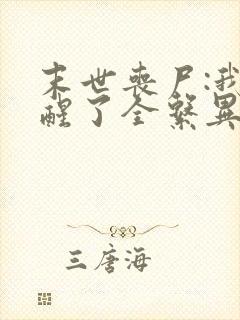 末世丧尸:我
醒了全系异
三唐海